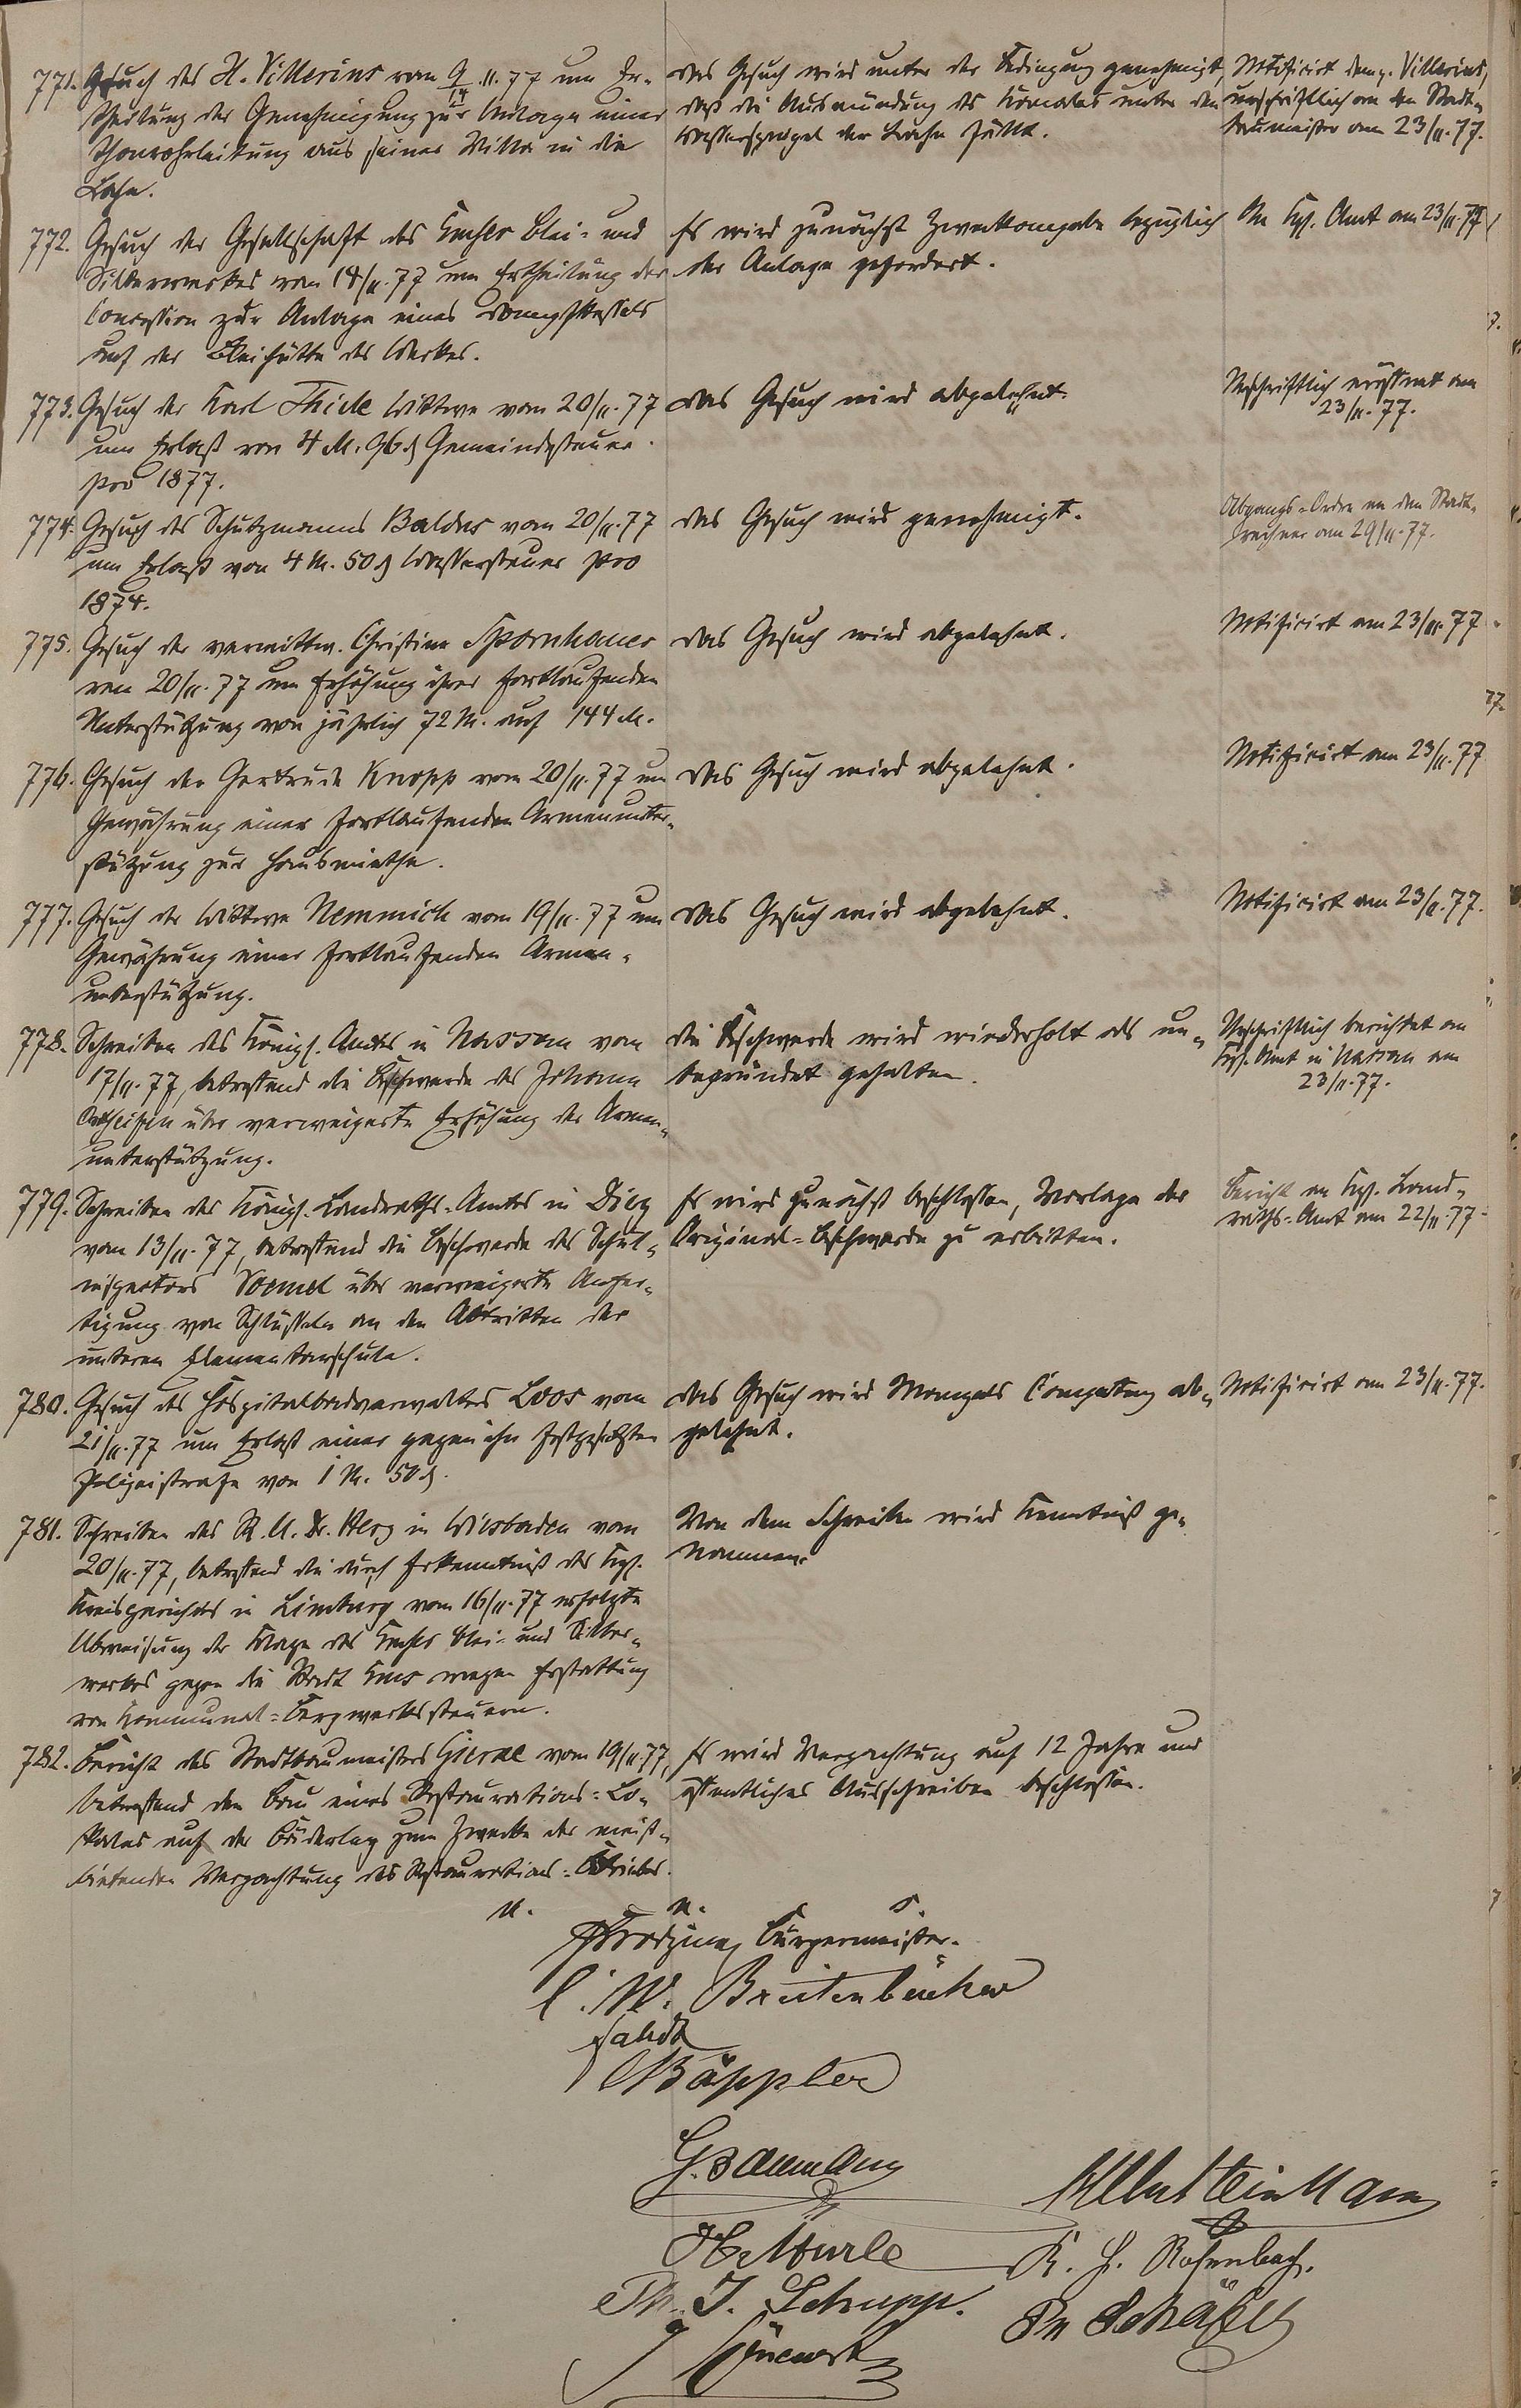 771. Gesuch des H. Villerius vom 9/14.11.77 um Er-
theilung der Genehmigung zur Anlage einer
Thonrohrleitung aus seiner Villa in die
Lahn.
Das Gesuch wird unter der Bedingung genehmigt,
daß die Ausmündung des Kanales unter den
Wasserspiegel der Lahn fällt.
Notificirt dem p. Villerius,
urschriftlich an den Stadt-
baumeister am 23/11.77.
772. Gesuch der Gesellschaft des Emser Blei- und
Silberwerkes vom 18/11.77 um Ertheilung der
Concession zur Anlage eines Dampfkessels
auf der Bleihütte des Werkes.
Es wird zunächst Zweckangabe bezüglich
der Anlage gefordert.
An Kgl. Amt am 23/11.77
773. Gesuch der Karl Thiele Wittwe vom 20/11.77
um Erlaß von 4 M. 96 ₰ Gemeindesteuer
pro 1877.
Das Gesuch wird abgelehnt.
Urschriftlich eröffnet am
23/11.77.
774. Gesuch des Schutzmanns Baldus vom 20/11.77
um Erlaß von 4 M. 50 ₰ Wassersteuer pro
1874.
Das Gesuch wird genehmigt.
Abgangs-Ordre an den Stadt-
rechner am 29/11.77.
775. Gesuch der verwittw. Christine Spornhauer
vom 20/11.77 um Erhöhung ihrer fortlaufenden
Unterstützung von jährlich 72 M. auf 144 M.
Das Gesuch wird abgelehnt.
Notificirt am 23/11.77
776. Gesuch der Gertrude Knopp vom 20/11.77 um
Gewährung einer fortlaufenden Armenunter-
stützung zur Hausmiethe.
Das Gesuch wird abgelehnt.
Notificirt am 23/11.77
777. Gesuch der Wittwe Nemmich vom 19/11.77 um
Gewährung einer fortlaufenden Armen-
unterstützung.
Das Gesuch wird abgelehnt.
Notificirt am 23/11.77.
778. Schreiben des Königl. Amtes in Nassau vom
17/11.77, betreffend die Beschwerde des Johann
über verweigerte Erhöhung der Armen-
unterstützung.
Die Beschwerde wird wiederholt als un-
begründet gehalten.
Urschriftlich berichtet an
Kgl. Amt in Nassau am
23/11.77.
779. Schreiben des Königl. Landraths-Amtes in Diez
vom 13/11.77, betreffend die Beschwerde des Schul-
inspectors Voemel über verweigerte Anfer-
tigung von Schlüsseln an den Abtritten der
unteren Elementarschule.
Es wird zunächst beschlossen, Vorlage der
Original-Beschwerde zu erbitten.
Bericht an Kgl. Land-
raths-Amt am 22/11.77.
780. Gesuch des Hospitalbadverwalters Loos vom
21/11.77 um Erlaß einer gegen ihn festgesetzten
Polizeistrafe von 1 M. 50 ₰.
Das Gesuch wird Mangels Competenz ab-
gelehnt.
Notificirt am 23/11.77.
781. Schreiben des R. A. Dr. Herz in Wiesbaden vom
20/11.77, betreffend die durch Erkenntniß des Kgl.
Kreisgerichts in Limburg vom 16/11.77 erfolgte
Abweisung der Klage des Emser Blei- und Silber-
werkes gegen die Stadt Ems wegen Erstattung
von Kommunal-Bergwerkssteuern.
Von dem Schreiben wird Kenntniß ge-
nommen.
782. Bericht des Stadtbaumeisters Gierae vom 19/11.77,
betreffend den Bau eines Restaurations-Lo-
kales auf der Bäderley zum Zwecke der meist-
bietenden Verpachtung des Restaurations-Betriebes.
Es wird Verpachtung auf 12 Jahre und
öffentliches Ausschreiben beschlossen.
u. u. s.
Bürgermeister.
C. W. Breitenbücher
Bäppler
Steinmann
K. H. Rosenbach.
Ph. J. Schupp.
Ph Schäfer